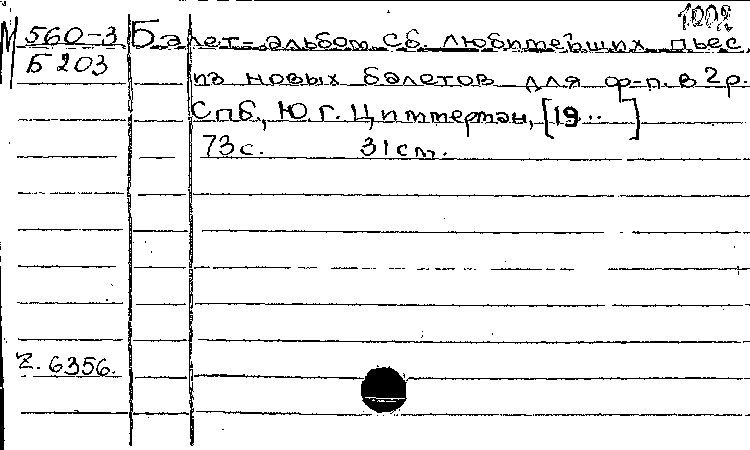 1002
М 560-3 Балет-альбом Сб. любимейших пьес
Б 203 из новых балетов для ф-п. в 2 р.
Спб., Ю. Г. Циммерман, [19..]
73 с. 31 см.
Z. 6356.